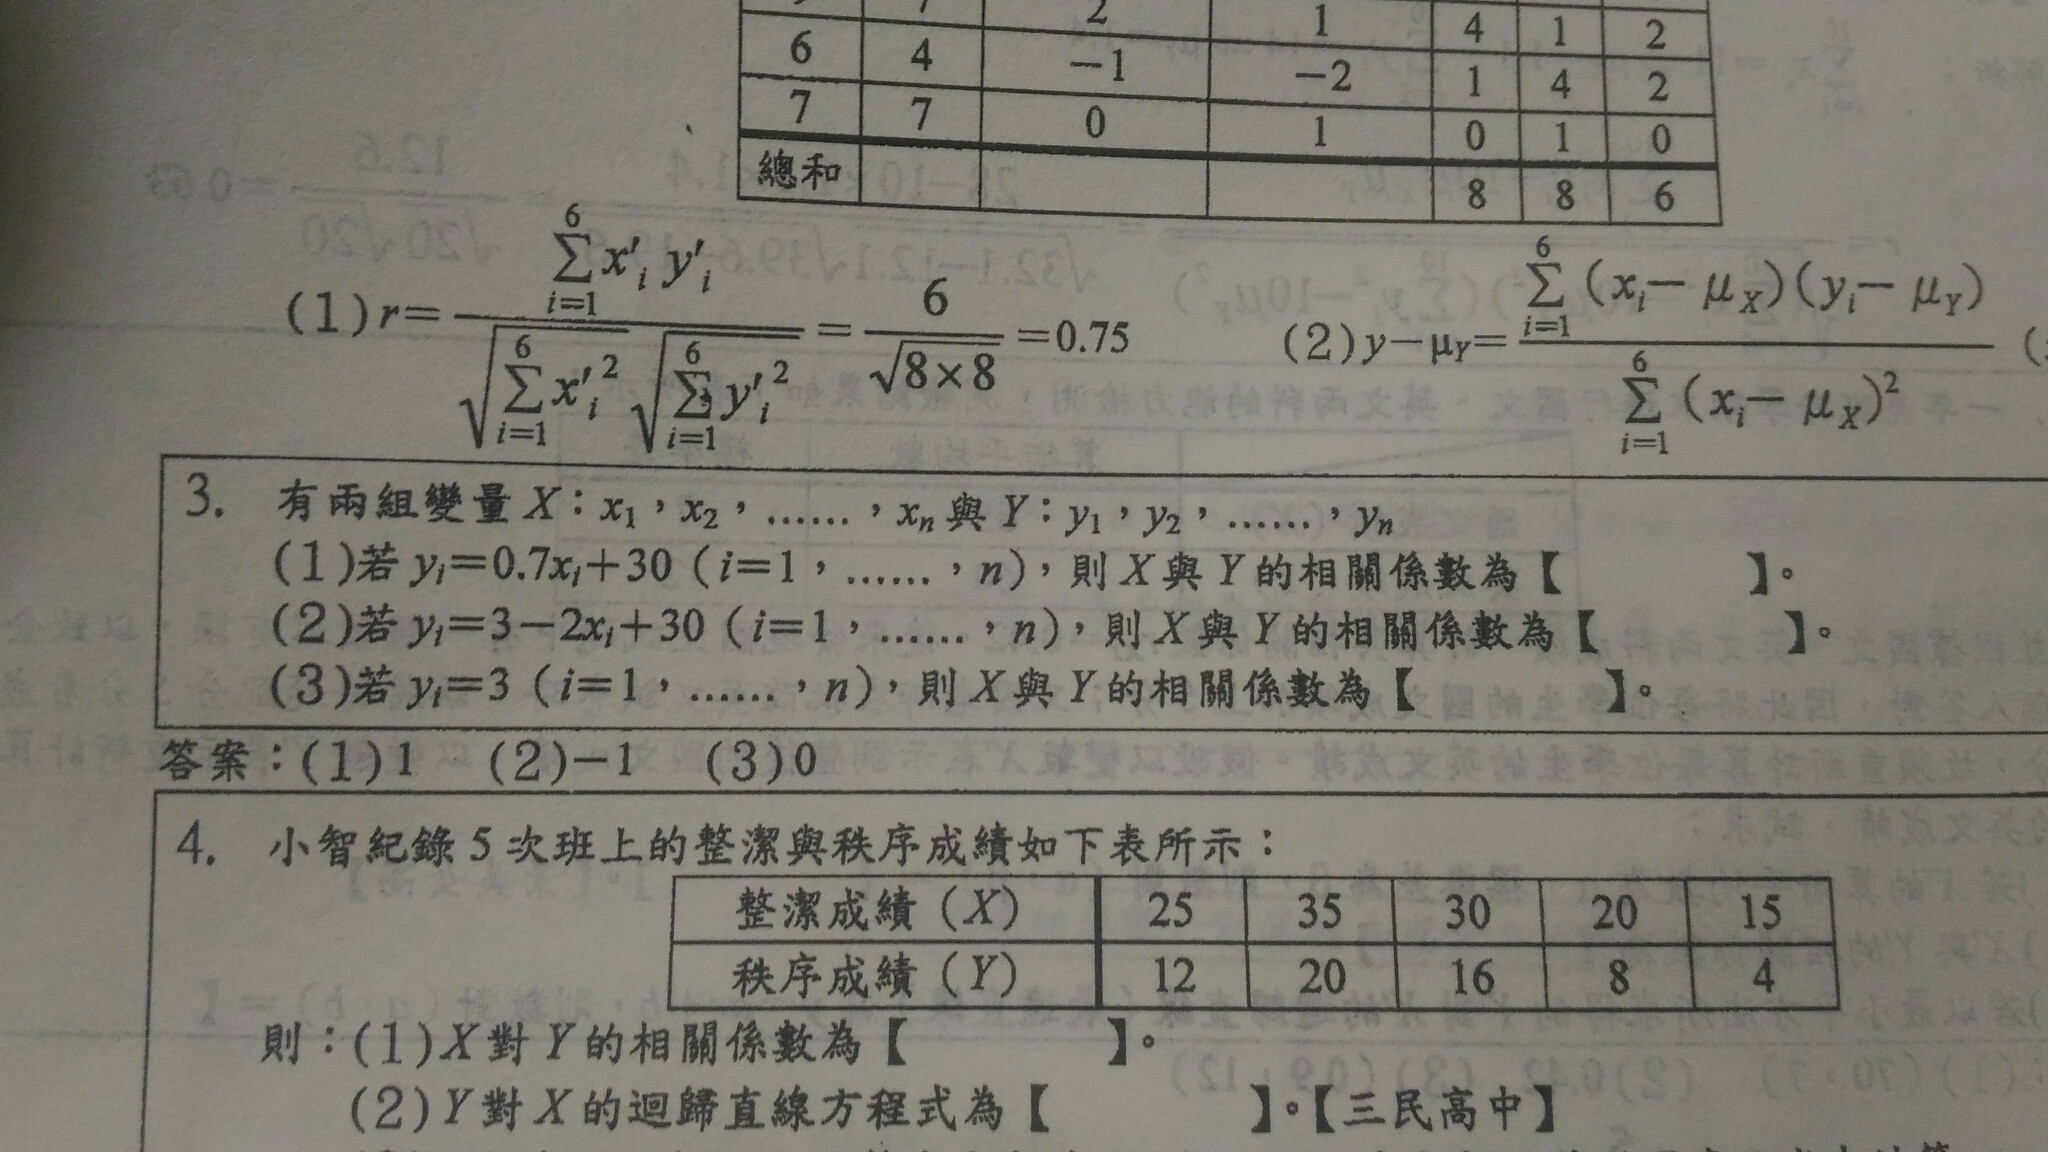 2 1 4 1 2
6 4 −1 −2 1 4 2
7 7 0 1 0 1 0
總和 8 8 6
(1) r = \frac{\sum_{i=1}^{6} x'_i y'_i}{\sqrt{\sum_{i=1}^{6} x'_i{}^2} \sqrt{\sum_{i=1}^{6} y'_i{}^2}} = \frac{6}{\sqrt{8×8}} = 0.75 (2) y−μ_Y = \frac{\sum_{i=1}^{6} (x_i− μ_X)(y_i− μ_Y)}{\sum_{i=1}^{6} (x_i− μ_X)^2} (
3. 有兩組變量 X：x₁，x₂，……，xₙ 與 Y：y₁，y₂，……，yₙ
(1)若 yᵢ=0.7xᵢ+30（i=1，……，n），則 X 與 Y 的相關係數為【 】。
(2)若 yᵢ=3−2xᵢ+30（i=1，……，n），則 X 與 Y 的相關係數為【 】。
(3)若 yᵢ=3（i=1，……，n），則 X 與 Y 的相關係數為【 】。
答案：(1)1 (2)−1 (3)0
4. 小智紀錄 5 次班上的整潔與秩序成績如下表所示：
整潔成績（X） 25 35 30 20 15
秩序成績（Y） 12 20 16 8 4
則：(1)X 對 Y 的相關係數為【 】。
(2)Y 對 X 的迴歸直線方程式為【 】。【三民高中】